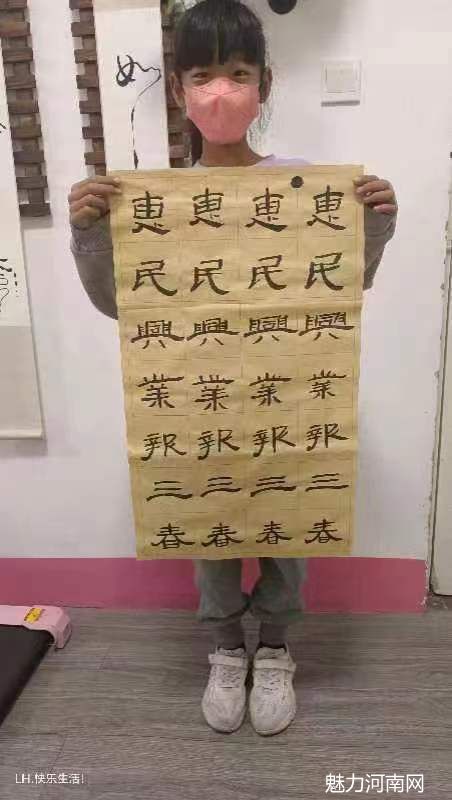 如
惠民興業報三春
惠民興業報三春
惠民興業報三春
惠民興業報三春
LH.快乐生活!
魅力河南网